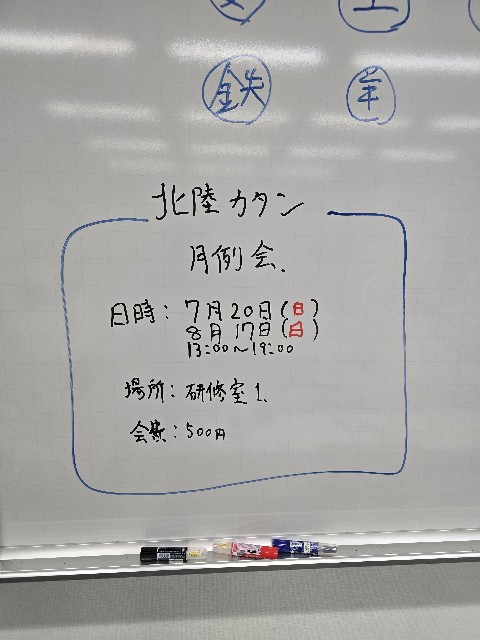 鉄 羊
北陸カタン
月例会.
日時: 7月20日(日)
8月17日(日)
13:00~19:00
場所: 研修室1.
会費: 500円